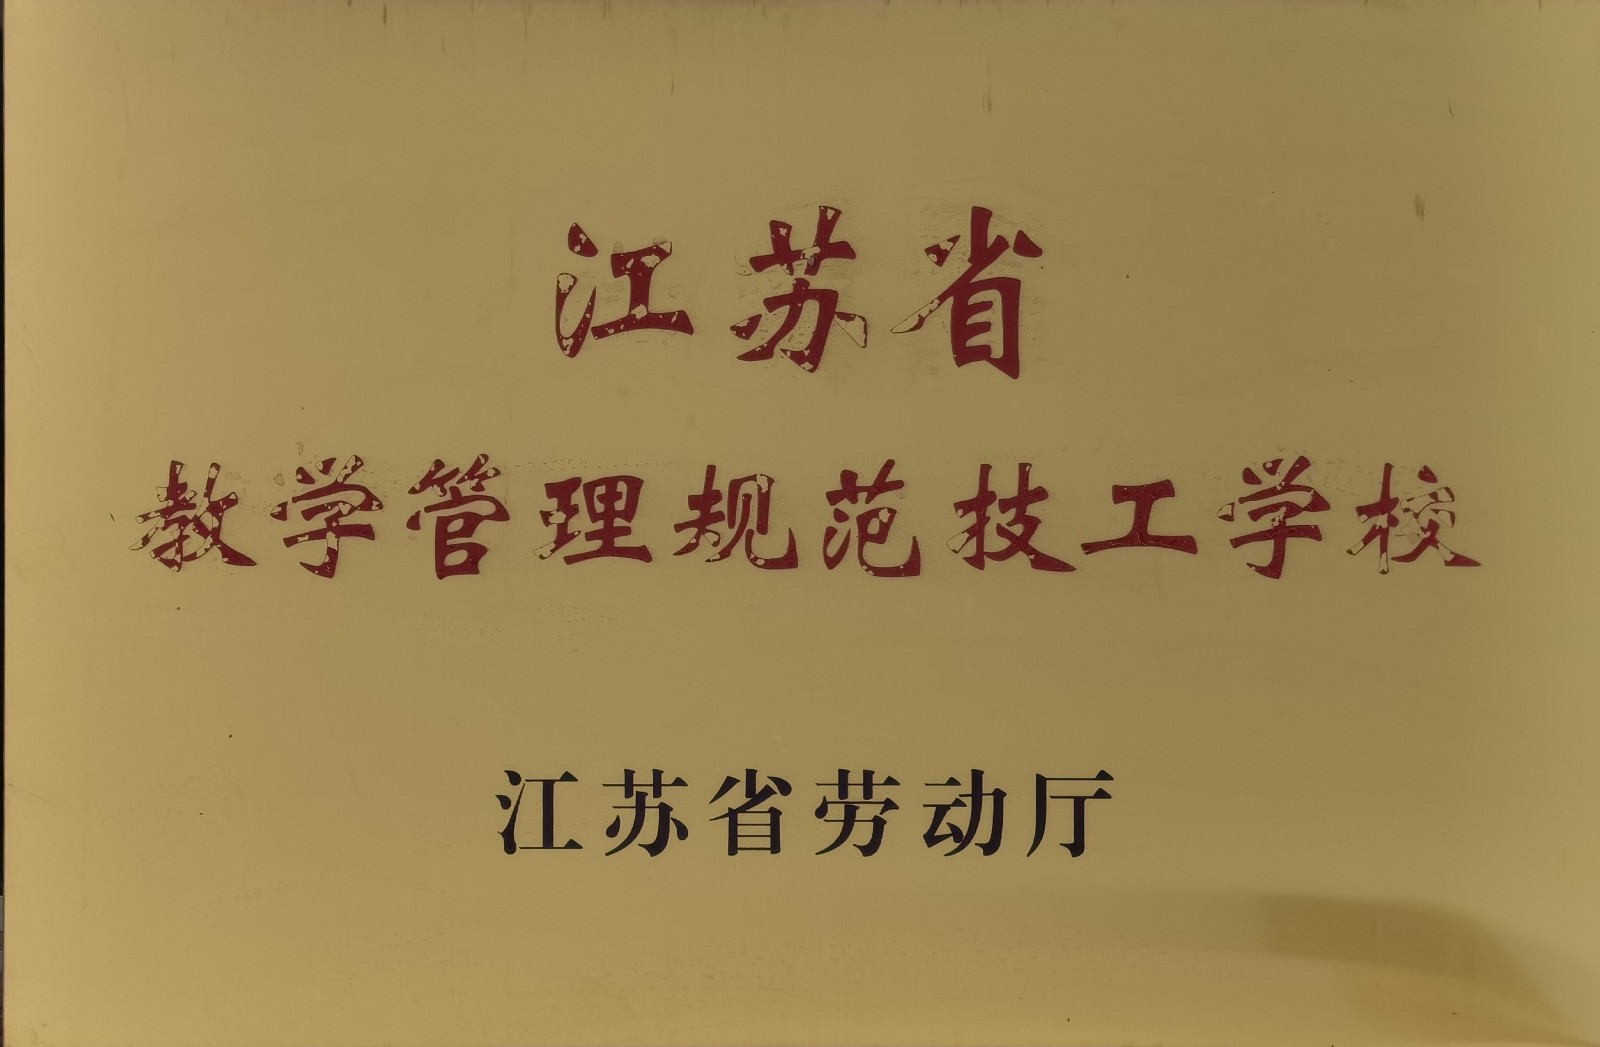 江苏省
教学管理规范技工学校
江苏省劳动厅